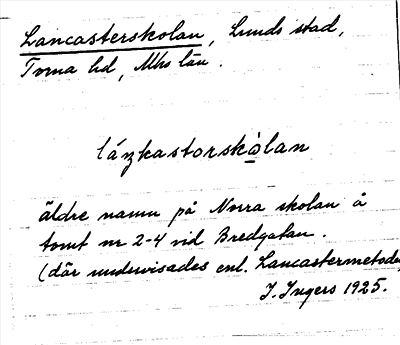 Lancasterskolan, Lunds stad,
Torna hd, Mhs län.
láŋkastorskò̠lan
äldre namn på Norra skolan å
tomt nr 2-4 vid Bredgatan.
(där undervisades enl. Lancastermetoden
I. Ingers 1925.